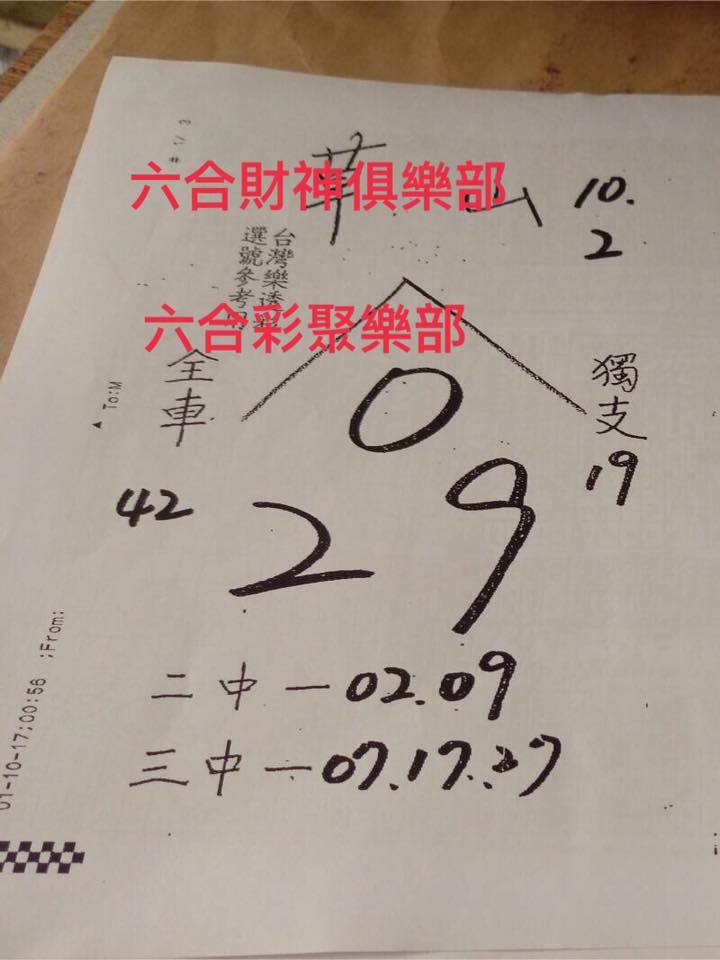 # 1/ 3
華山
六合財神俱樂部
10.
2
台灣樂透彩
選號參考用
六合彩聚樂部
全車
獨支
▲ To:M
0
19
42
2 9
二中一02.09
三中一07.17.27
01-10-17;00:56 ;From: